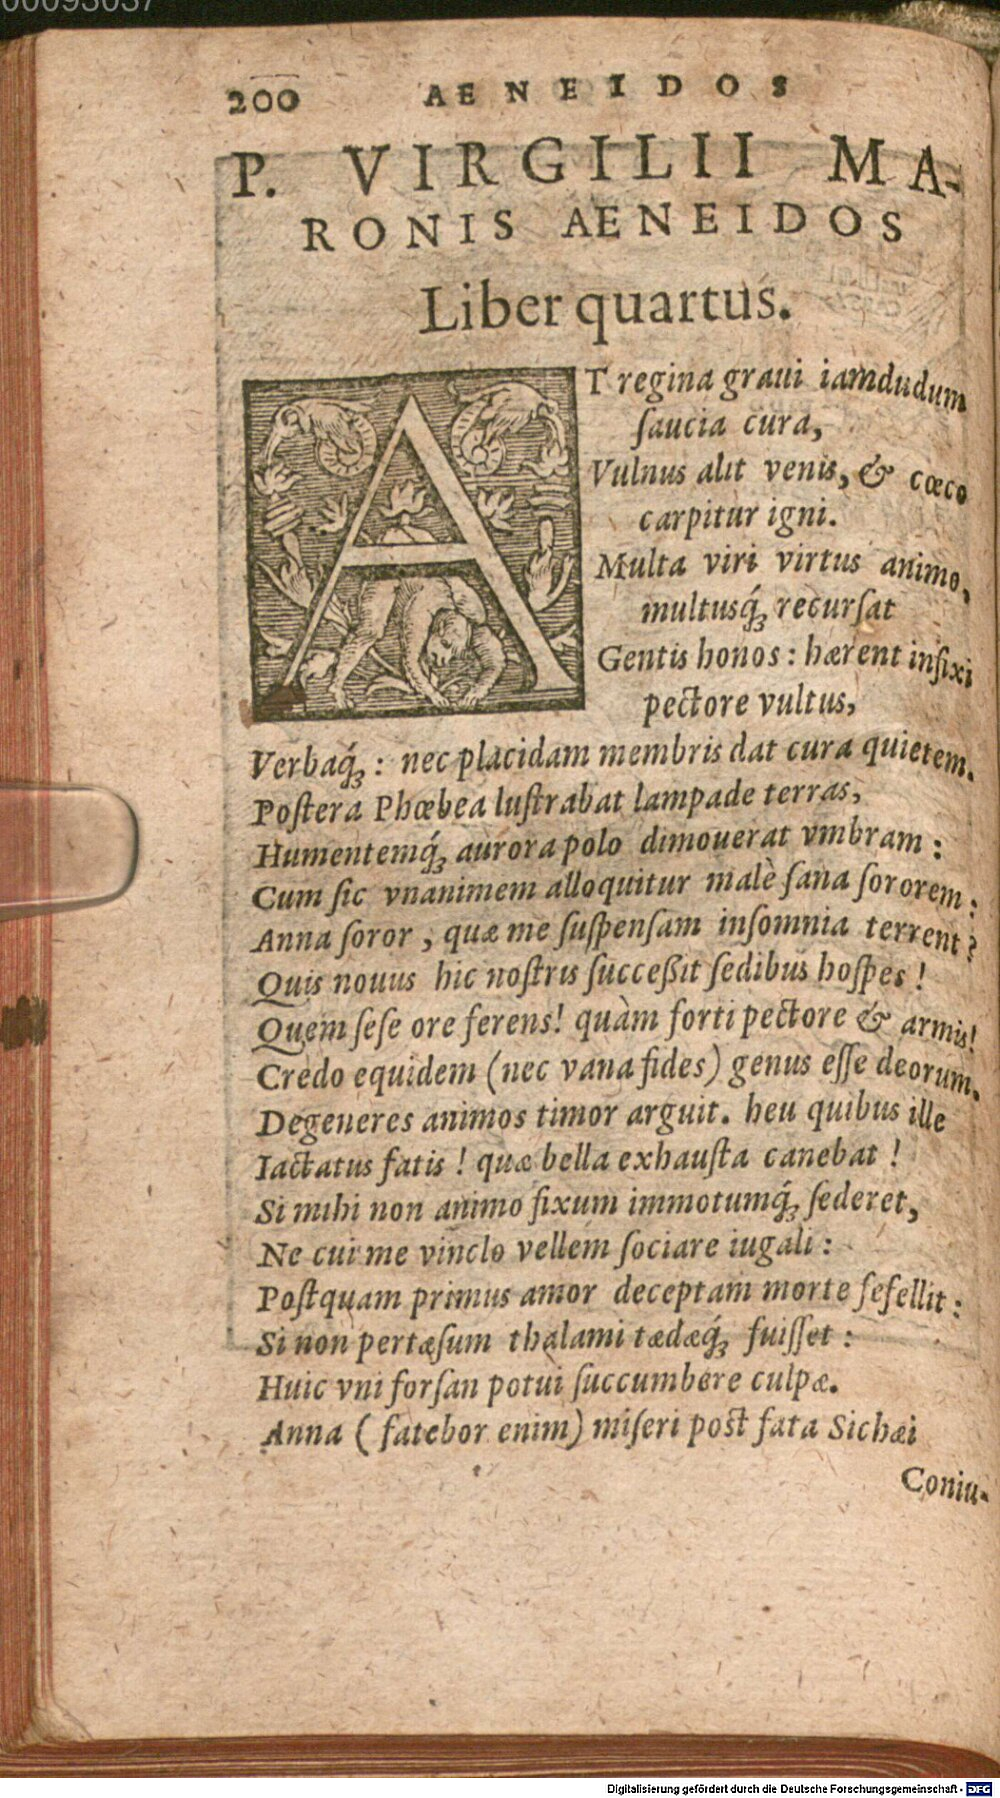 00093037
200 AENEIDOS
P. VIRGILII MA-
RONIS AENEIDOS
Liber quartus.
AT regina graui iamdudum
ſaucia cura,
Vulnus alit venis, & cœco
carpitur igni.
Multa viri virtus animo,
multusq́ꝫ recurſat
Gentis honos : hærent infixi
pectore vultus,
Verbaq́ꝫ : nec placidam membris dat cura quietem.
Poſtera Phœbea luſtrabat lampade terras,
Humentemq́ꝫ aurora polo dimouerat vmbram :
Cum ſic vnanimem alloquitur malè ſana ſororem :
Anna ſoror , quæ me ſuſpenſam inſomnia terrent ?
Quis nouus hic noſtris ſucceßit ſedibus hoſpes !
Quem ſeſe ore ferens! quàm forti pectore & armis!
Credo equidem (nec vana fides) genus eſſe deorum.
Degeneres animos timor arguit. heu quibus ille
Iactatus fatis ! quæ bella exhauſta canebat !
Si mihi non animo fixum immotumq́ꝫ ſederet,
Ne cui me vinclo vellem ſociare iugali :
Poſtquam primus amor deceptam morte fefellit :
Si non pertæſum thalami tædæq́ꝫ fuiſſet :
Huic vni forſan potui ſuccumbere culpæ.
Anna ( fatebor enim) miſeri poſt fata Sichæi
Coniu-
Digitalisierung gefördert durch die Deutsche Forschungsgemeinschaft - DFG